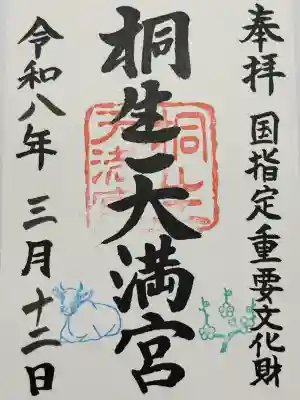 奉拝 国指定重要文化財
桐生天満宮
令和八年 三月 十二日